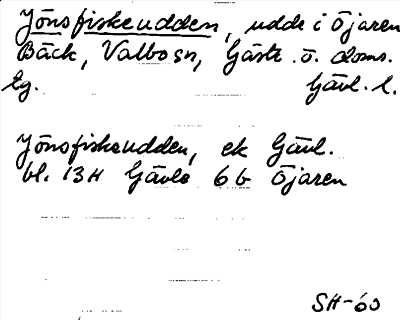 Jönsfiskeudden, udde i Öjaren
Bäck, Valbo sn, Gästr. ö. doms.
Lg. Gävl. l.
Jönsfiskeudden, ek Gävl.
bl. 13H Gävle 6 b Öjaren
SH-60